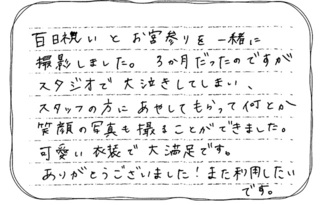 百日祝いとお宮参りを一緒に
撮影しました。3か月だったのですが
スタジオで大泣きしてしまい、
スタッフの方にあやしてもらって何とか
笑顔の写真も撮ることができました。
可愛い衣装で大満足です。
ありがとうございました!また利用したい
です。